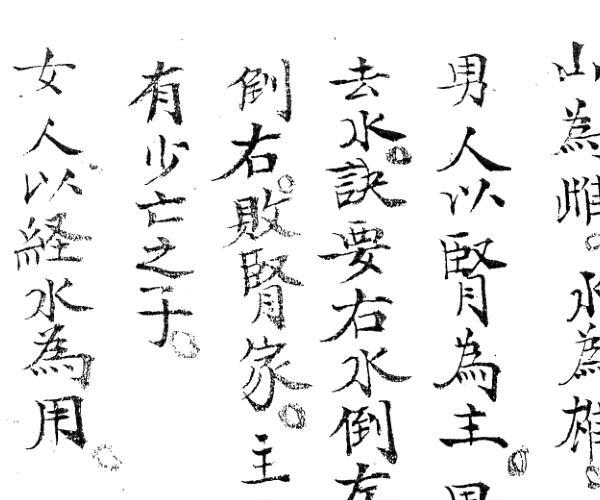 山為雌。水為雄。
男人以腎為主。男
去水。訣要右水倒左
倒右。敗腎家。主
有少亡之子。
女人以経水為用。